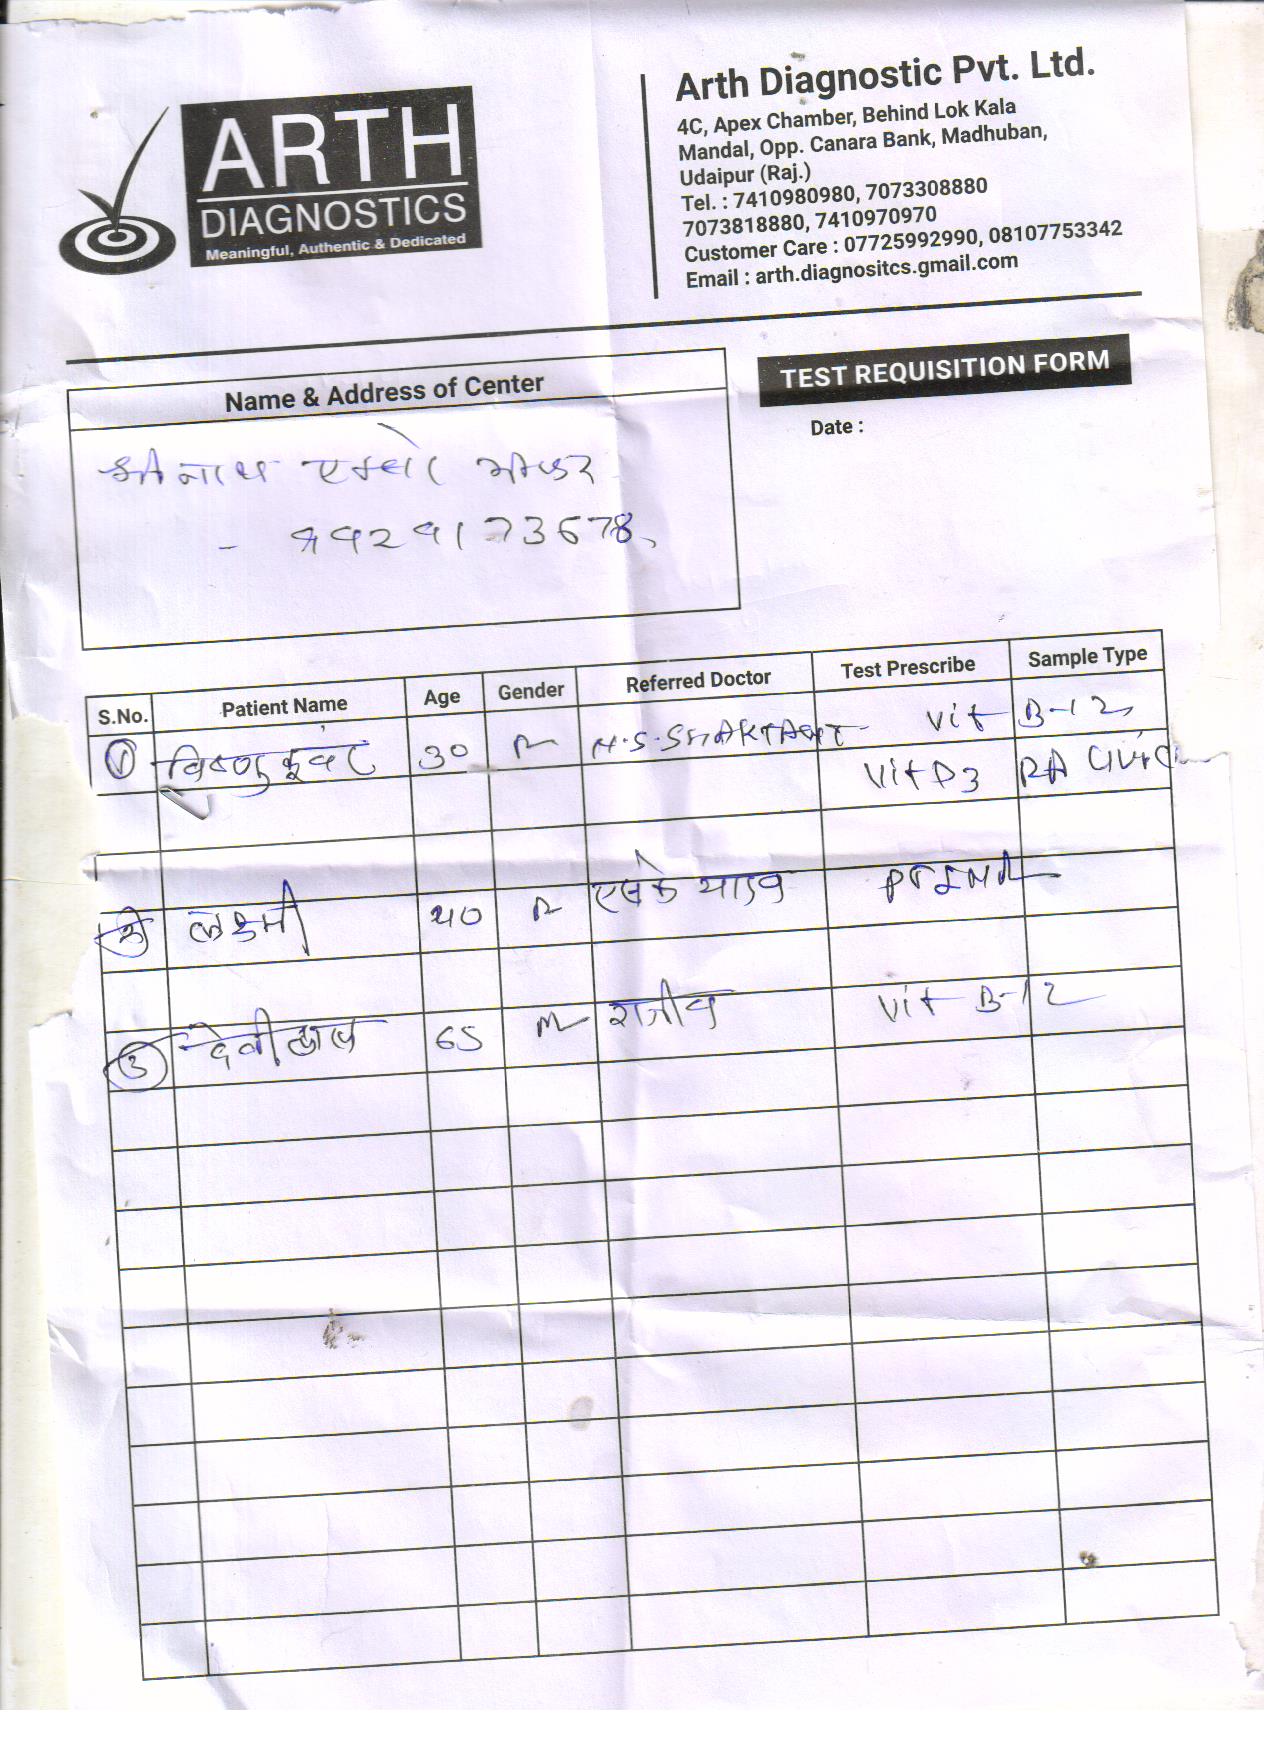 ARTH
DIAGNOSTICS
Meaningful, Authentic & Dedicated
Arth Diagnostic Pvt. Ltd.
4C, Apex Chamber, Behind Lok Kala
Mandal, Opp. Canara Bank, Madhuban,
Udaipur (Raj.)
Tel. : 7410980980, 7073308880
7073818880, 7410970970
Customer Care : 07725992990, 08107753342
Email : arth.diagnositcs.gmail.com
Name & Address of Center
TEST REQUISITION FORM
Date :
S.No. Patient Name Age Gender Referred Doctor Test Prescribe Sample Type
1 विष्णु कुंवर 30 Vit B-12
Vit D3 RA
2 लक्ष्मी 40
3 देवीलाल 65 M राजीव Vit B-12